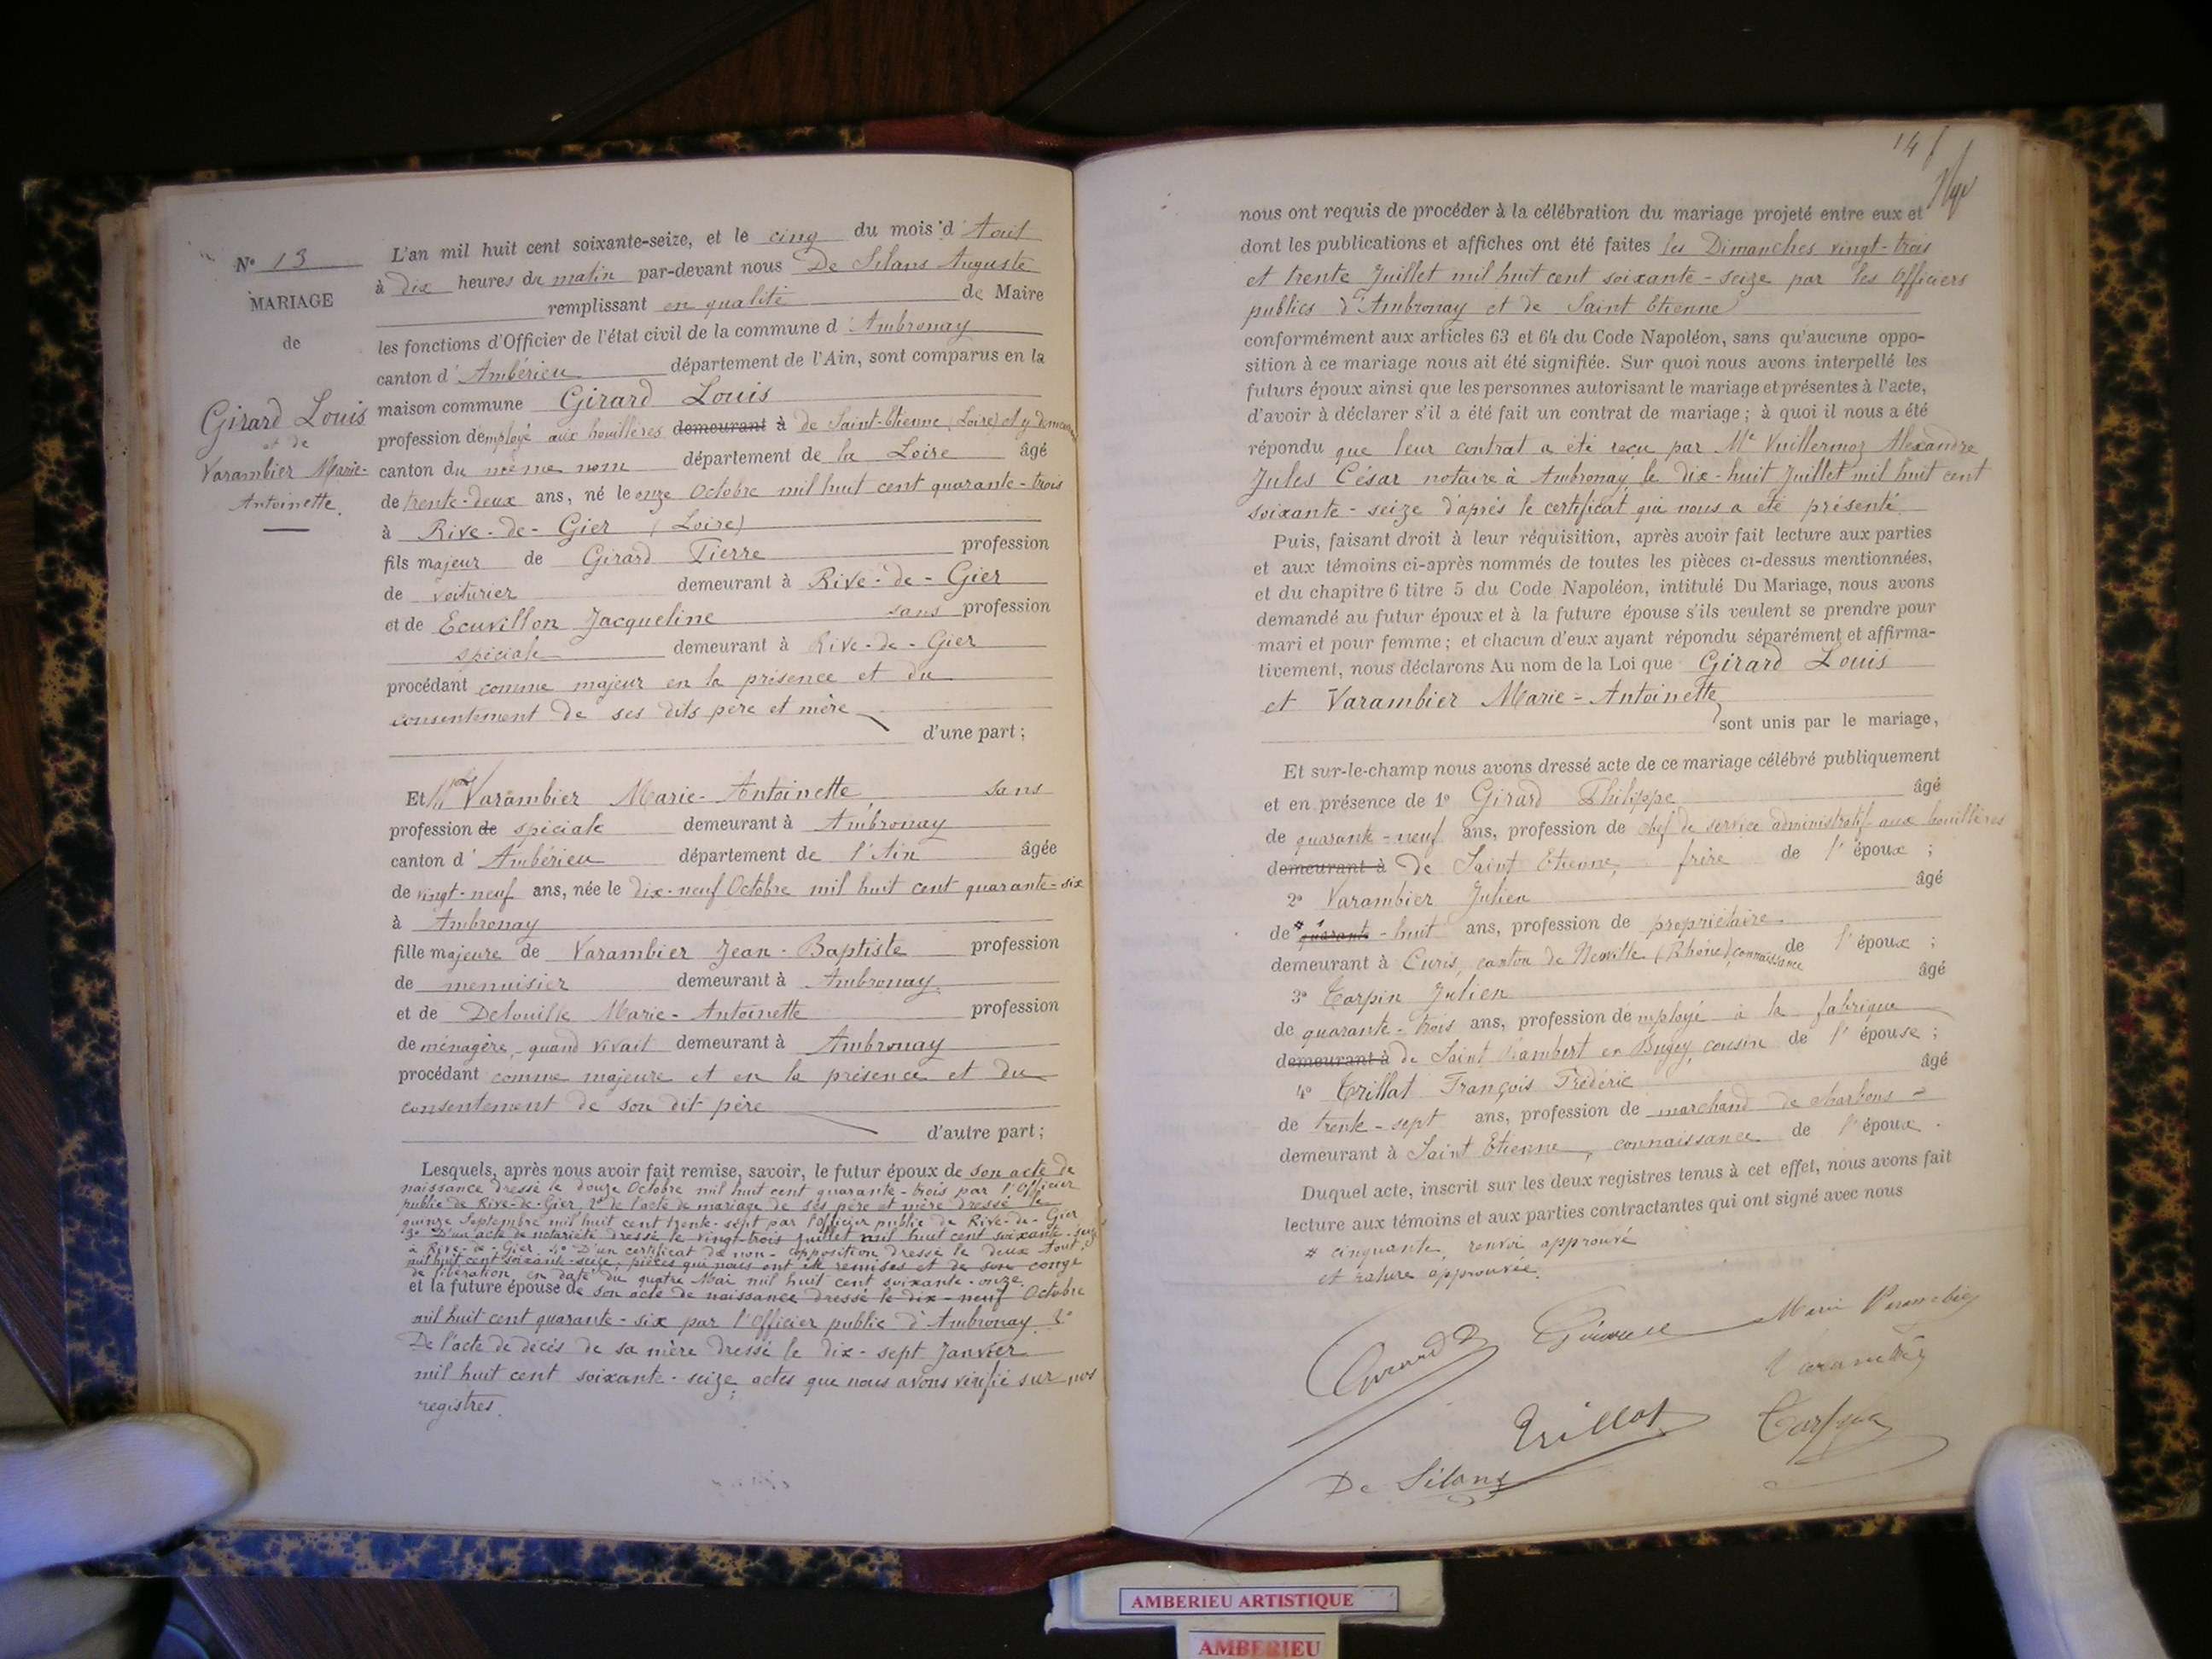 N° 13
MARIAGE
de
Girard Louis
et de
Varambier Marie-
Antoinette.
L'an mil huit cent soixante-seize, et le cinq du mois d'Août
à dix heures du matin par-devant nous De Silans Auguste
remplissant en qualité de Maire
les fonctions d'Officier de l'état civil de la commune d'Ambronay
canton d'Ambérieu département de l'Ain, sont comparus en la
maison commune Girard Louis
profession d'employé aux houillères demeurant à de Saint-Etienne (Loire) et y demeurant
canton du même nom département de la Loire âgé
de trente-deux ans, né le onze Octobre mil huit cent quarante-trois
à Rive-de-Gier (Loire)
fils majeur de Girard Pierre profession
de voiturier demeurant à Rive-de-Gier
et de Ecuvillon Jacqueline sans profession
spéciale demeurant à Rive-de-Gier
procédant comme majeur en la présence et du
consentement de ses dits père et mère
d'une part;
Et Mlle Varambier Marie-Antoinette, sans
profession de spéciale demeurant à Ambronay
canton d'Ambérieu département de l'Ain âgée
de vingt-neuf ans, née le dix-neuf Octobre mil huit cent quarante-six
à Ambronay
fille majeure de Varambier Jean-Baptiste profession
de menuisier demeurant à Ambronay
et de Delouille Marie-Antoinette profession
de ménagère, quand vivait demeurant à Ambronay
procédant comme majeure et en la présence et du
consentement de son dit père
d'autre part;
Lesquels, après nous avoir fait remise, savoir, le futur époux de son acte de
naissance dressé le douze Octobre mil huit cent quarante-trois par l'Officier
public de Rive-de-Gier 2° de l'acte de mariage de ses père et mère dressé le
quinze Septembre mil huit cent trente-sept par l'Officier public de Rive-de-Gier
3° D'un acte de notoriété dressé le vingt-trois Juillet mil huit cent soixante-seize
à Rive-de-Gier 4° D'un certificat de non-opposition dressé le deux Août
mil huit cent soixante-seize, pièces qui nous ont été remises et de son congé
de libération en date du quatre Mai mil huit cent soixante-onze.
et la future épouse de son acte de naissance dressé le dix-neuf Octobre
mil huit cent quarante-six par l'Officier public d'Ambronay 2°
De l'acte de décès de sa mère dressé le dix-sept Janvier
mil huit cent soixante-seize; actes que nous avons vérifié sur nos
registres.
14
nous ont requis de procéder à la célébration du mariage projeté entre eux et
dont les publications et affiches ont été faites les Dimanches vingt-trois
et trente Juillet mil huit cent soixante-seize par les Officiers
publics d'Ambronay et de Saint Etienne
conformément aux articles 63 et 64 du Code Napoléon, sans qu'aucune oppo-
sition à ce mariage nous ait été signifiée. Sur quoi nous avons interpellé les
futurs époux ainsi que les personnes autorisant le mariage et présentes à l'acte,
d'avoir à déclarer s'il a été fait un contrat de mariage; à quoi il nous a été
répondu que leur contrat a été reçu par Me Vuillermoz Alexandre
Jules César notaire à Ambronay le dix-huit Juillet mil huit cent
soixante-seize d'après le certificat qui nous a été présenté
Puis, faisant droit à leur réquisition, après avoir fait lecture aux parties
et aux témoins ci-après nommés de toutes les pièces ci-dessus mentionnées,
et du chapitre 6 titre 5 du Code Napoléon, intitulé Du Mariage, nous avons
demandé au futur époux et à la future épouse s'ils veulent se prendre pour
mari et pour femme; et chacun d'eux ayant répondu séparément et affirma-
tivement, nous déclarons Au nom de la Loi que Girard Louis
et Varambier Marie-Antoinette
sont unis par le mariage,
Et sur-le-champ nous avons dressé acte de ce mariage célébré publiquement
et en présence de 1° Girard Philippe âgé
de quarante-neuf ans, profession de chef de service administratif aux houillères
demeurant à de Saint Etienne, frère de l'époux;
2° Varambier Julien âgé
de # quarante-huit ans, profession de propriétaire
demeurant à Curis, canton de Neuville (Rhône), connaissance de l'époux;
3° Carpin Julien âgé
de quarante-trois ans, profession d'employé à la fabrique
demeurant à de Saint Rambert en Bugey, cousin de l'épouse;
4° Trillat François Frédéric âgé
de trente-sept ans, profession de marchand de charbons
demeurant à Saint Etienne, connaissance de l'époux.
Duquel acte, inscrit sur les deux registres tenus à cet effet, nous avons fait
lecture aux témoins et aux parties contractantes qui ont signé avec nous
# cinquante, renvoi approuvé
et rature approuvée.
Marie Varambier
Varambier
Trillat
De Silans
AMBERIEU ARTISTIQUE
AMBERIEU